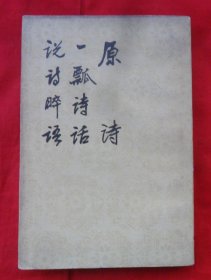 原诗
一瓢诗话
说诗晬语